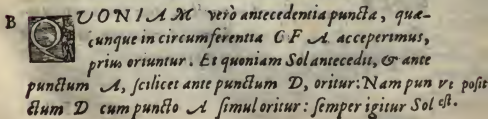 B QVONIAM verò antecedentia puncta, quæ-
cunque in circumferentia G F A acceperimus,
prius oriuntur. Et quoniam Sol antecedit, & ante
punctum A, scilicet ante punctum D, oritur: Nam pun vt posit
ctum D cum puncto A simul oritur: semper igitur Sol est.